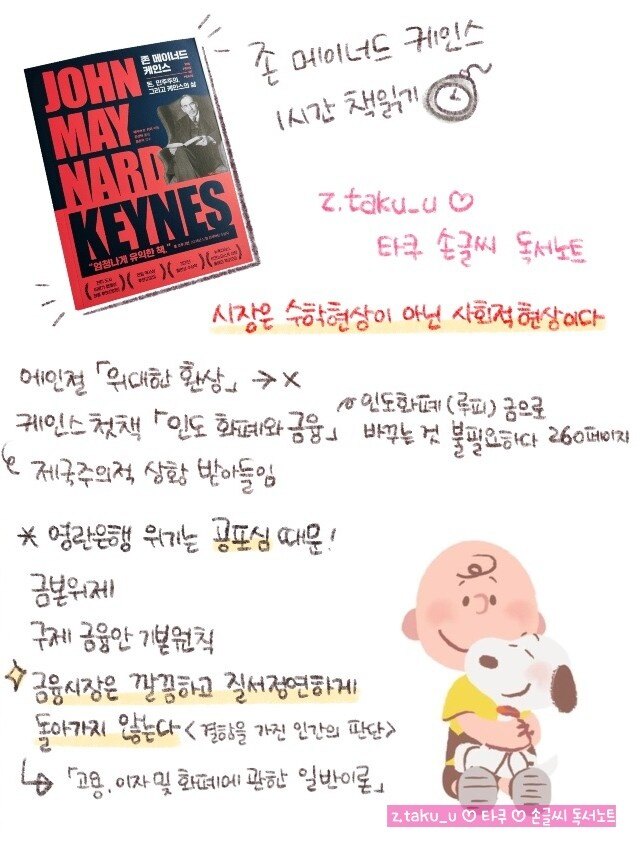 존 메이너드
케인스
돈, 민주주의,
그리고 케인스의 삶
JOHN
MAY
NARD
KEYNES
"엄청나게 유익한 책."
존 메이너드 케인스
1시간 책읽기
z.taku_u ♡
타쿠 손글씨 독서노트
시장은 수학현상이 아닌 사회적현상이다
에인절 「위대한 환상」 → ×
케인스 첫책 「인도 화폐와 금융」
인도화폐(루피) 금으로
바꾸는 것 불필요하다 260페이지
제국주의적 상황 받아들임
* 영란은행 위기는 공포심 때문!
금본위제
구제 금융안 기본원칙
금융시장은 깔끔하고 질서정연하게
돌아가지 않는다 <결함을 가진 인간의 판단>
↳ 「고용, 이자 및 화폐에 관한 일반이론」
z.taku_u ♡ 타쿠 ♡ 손글씨 독서노트